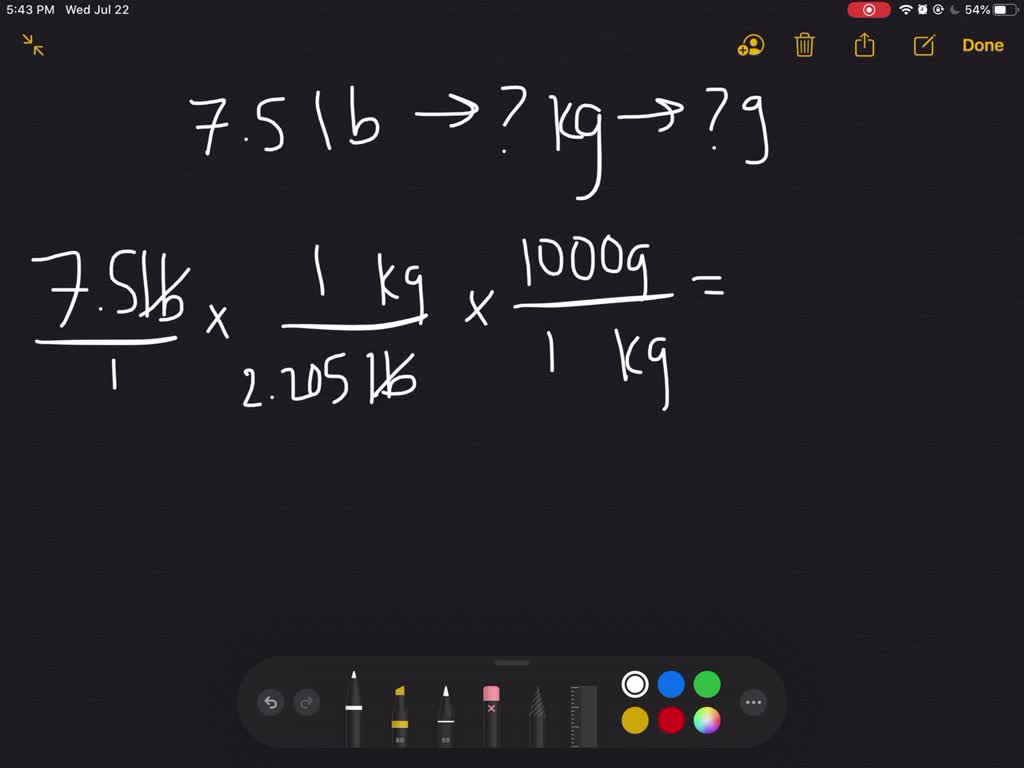 5:43 PM Wed Jul 22 54%
Done
7.5 lb → ? kg → ? g
7.5 lb / 1 × 1 kg / 2.205 lb × 1000g / 1 kg =
80 50